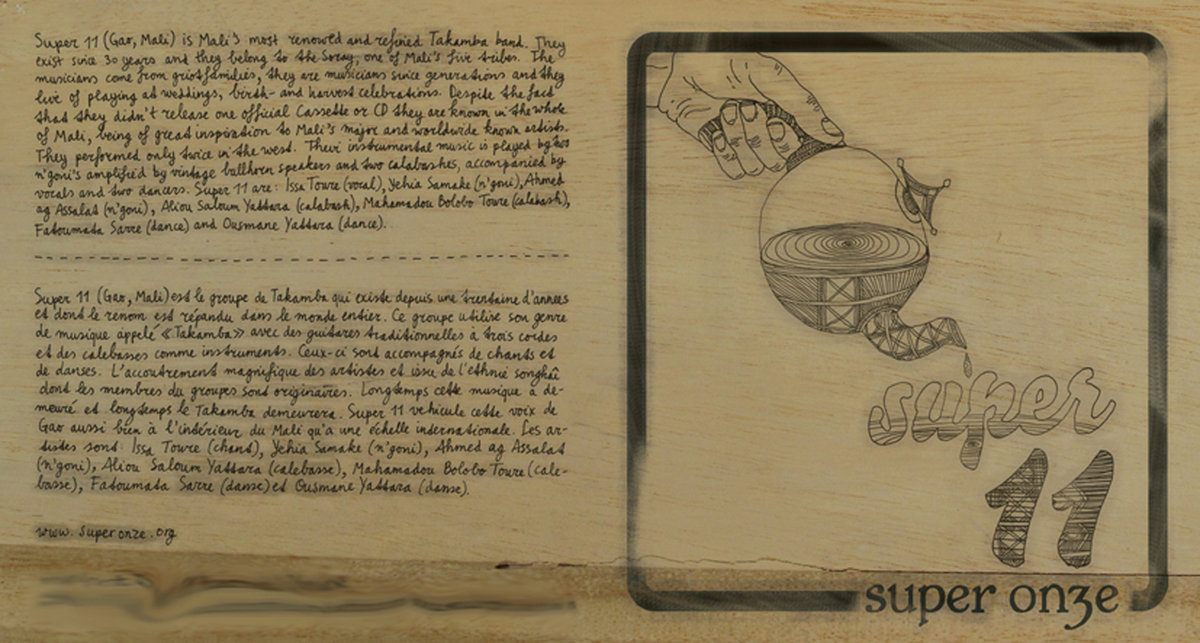 Super 11 (Gao, Mali) is Mali's most renowed and refined Takamba band. They
exist since 30 years and they belong to the Soray, one of Mali's five tribes. The
musicians come from griotfamilies, they are musicians since generations and they
live of playing at weddings, birth- and harvest celebrations. Despite the fact
that they didn't release one official Cassette or CD they are known in the whole
of Mali, being of great inspiration to Mali's major and worldwide known artists.
They performed only twice in the west. Their instrumental music is played by two
n'goni's amplified by vintage bullhorn speakers and two calabashes, accompanied by
vocals and two dancers. Super 11 are: Issa Toure (vocal), Yehia Samake (n'goni), Ahmed
ag Assalat (n'goni), Aliou Saloum Yattara (calabash), Mahamadou Bolobo Toure (calabash),
Fatoumata Sarre (dance) and Ousmane Yattara (dance).
Super 11 (Gao, Mali) est le groupe de Takamba qui existe depuis une trentaine d'annees
et dont le renom est répandu dans le monde entier. Ce groupe utilise son genre
de musique appelé «Takamba» avec des guitares traditionnelles à trois cordes
et des calebasses comme instruments. Ceux-ci sont accompagnés de chants et
de danses. L'accoutrement magnifique des artistes et issue de l'ethnie songhaï
dont les membres du groupes sont originaires. Longtemps cette musique a de-
meuré et longtemps le Takamba demeurera. Super 11 vehicule cette voix de
Gao aussi bien à l'intérieur du Mali qu'a une échelle internationale. Les ar-
tistes sont: Issa Toure (chant), Yehia Samake (n'goni), Ahmed ag Assalat
(n'goni), Aliou Saloum Yattara (calebasse), Mahamadou Bolobo Toure (cale-
basse), Fatoumata Sarre (danse) et Ousmane Yattara (danse).
www.superonze.org
super
11
super onze